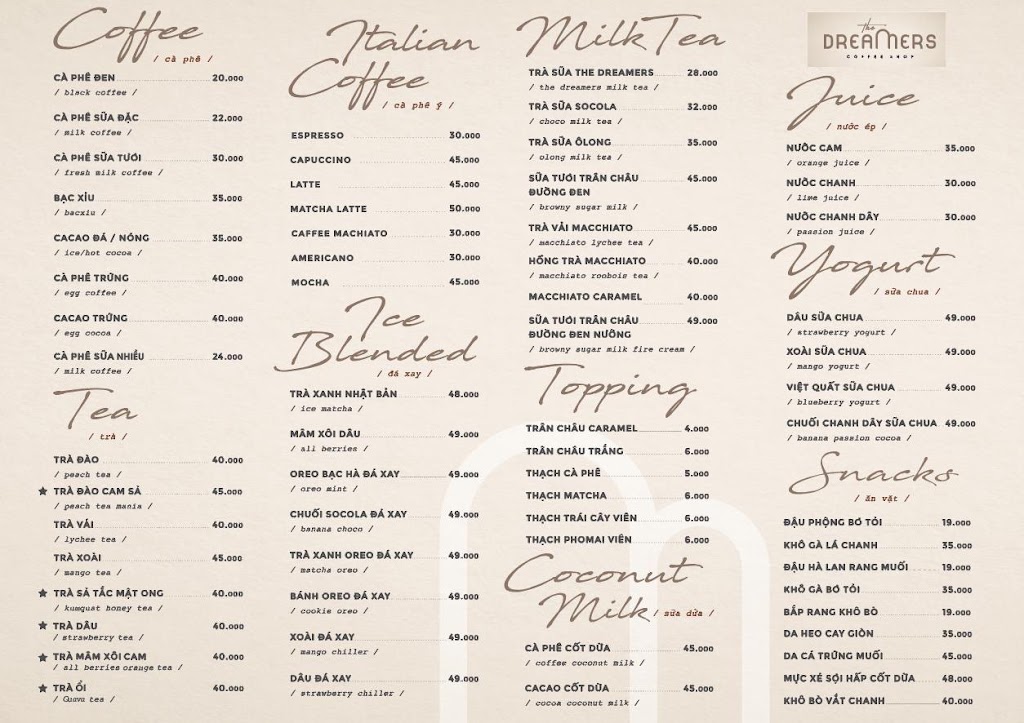 Coffee
/ cà phê /
CÀ PHÊ ĐEN 20.000
/ black coffee /
CÀ PHÊ SỮA ĐẶC 22.000
/ milk coffee /
CÀ PHÊ SỮA TƯƠI 30.000
/ fresh milk coffee /
BẠC XỈU 35.000
/ bacxiu /
CACAO ĐÁ / NÓNG 35.000
/ ice/hot cocoa /
CÀ PHÊ TRỨNG 40.000
/ egg coffee /
CACAO TRỨNG 40.000
/ egg cocoa /
CÀ PHÊ SỮA NHIỀU 24.000
/ milk coffee /
Tea
/ trà /
TRÀ ĐÀO 40.000
/ peach tea /
★ TRÀ ĐÀO CAM SẢ 45.000
/ peach tea mania /
TRÀ VẢI 40.000
/ lychee tea /
TRÀ XOÀI 45.000
/ mango tea /
★ TRÀ SẢ TẮC MẬT ONG 40.000
/ kumquat honey tea /
★ TRÀ DÂU 40.000
/ strawberry tea /
★ TRÀ MÂM XÔI CAM 40.000
/ all berries orange tea /
★ TRÀ ỔI 40.000
/ Guava tea /
Italian
Coffee
/ cà phê ý /
ESPRESSO 30.000
CAPUCCINO 45.000
LATTE 45.000
MATCHA LATTE 50.000
CAFFEE MACHIATO 30.000
AMERICANO 30.000
MOCHA 45.000
Ice
Blended
/ đá xay /
TRÀ XANH NHẬT BẢN 48.000
/ ice matcha /
MÂM XÔI DÂU 49.000
/ all berries /
OREO BẠC HÀ ĐÁ XAY 49.000
/ oreo mint /
CHUỐI SOCOLA ĐÁ XAY 49.000
/ banana choco /
TRÀ XANH OREO ĐÁ XAY 49.000
/ matcha oreo /
BÁNH OREO ĐÁ XAY 49.000
/ cookie oreo /
XOÀI ĐÁ XAY 49.000
/ mango chiller /
DÂU ĐÁ XAY 49.000
/ strawberry chiller /
Milk Tea
TRÀ SỮA THE DREAMERS 28.000
/ the dreamers milk tea /
TRÀ SỮA SOCOLA 32.000
/ choco milk tea /
TRÀ SỮA ÔLONG 35.000
/ olong milk tea /
SỮA TƯƠI TRÂN CHÂU 45.000
ĐƯỜNG ĐEN
/ browny sugar milk /
TRÀ VẢI MACCHIATO 45.000
/ macchiato lychee tea /
HỒNG TRÀ MACCHIATO 40.000
/ macchiato roobois tea /
MACCHIATO CARAMEL 40.000
SỮA TƯƠI TRÂN CHÂU 49.000
ĐƯỜNG ĐEN NƯỚNG
/ browny sugar milk fire cream /
Topping
TRÂN CHÂU CARAMEL 4.000
TRÂN CHÂU TRẮNG 6.000
THẠCH CÀ PHÊ 5.000
THẠCH MATCHA 6.000
THẠCH TRÁI CÂY VIÊN 6.000
THẠCH PHOMAI VIÊN 6.000
Coconut
Milk / sữa dừa /
CÀ PHÊ CỐT DỪA 45.000
/ coffee coconut milk /
CACAO CỐT DỪA 45.000
/ cocoa coconut milk /
the
DREAMERS
COFFEE SHOP
Juice
/ nước ép /
NƯỚC CAM 35.000
/ orange juice /
NƯỚC CHANH 30.000
/ lime juice /
NƯỚC CHANH DÂY 30.000
/ passion juice /
Yogurt
/ sữa chua /
DÂU SỮA CHUA 49.000
/ strawberry yogurt /
XOÀI SỮA CHUA 49.000
/ mango yogurt /
VIỆT QUẤT SỮA CHUA 49.000
/ blueberry yogurt /
CHUỐI CHANH DÂY SỮA CHUA 49.000
/ banana passion cocoa /
Snacks
/ ăn vặt /
ĐẬU PHỘNG BƠ TỎI 19.000
KHÔ GÀ LÁ CHANH 35.000
ĐẬU HÀ LAN RANG MUỐI 19.000
KHÔ GÀ BƠ TỎI 35.000
BẮP RANG KHÔ BÒ 19.000
DA HEO CAY GIÒN 35.000
DA CÁ TRỨNG MUỐI 45.000
MỰC XÉ SỢI HẤP CỐT DỪA 48.000
KHÔ BÒ VẮT CHANH 40.000